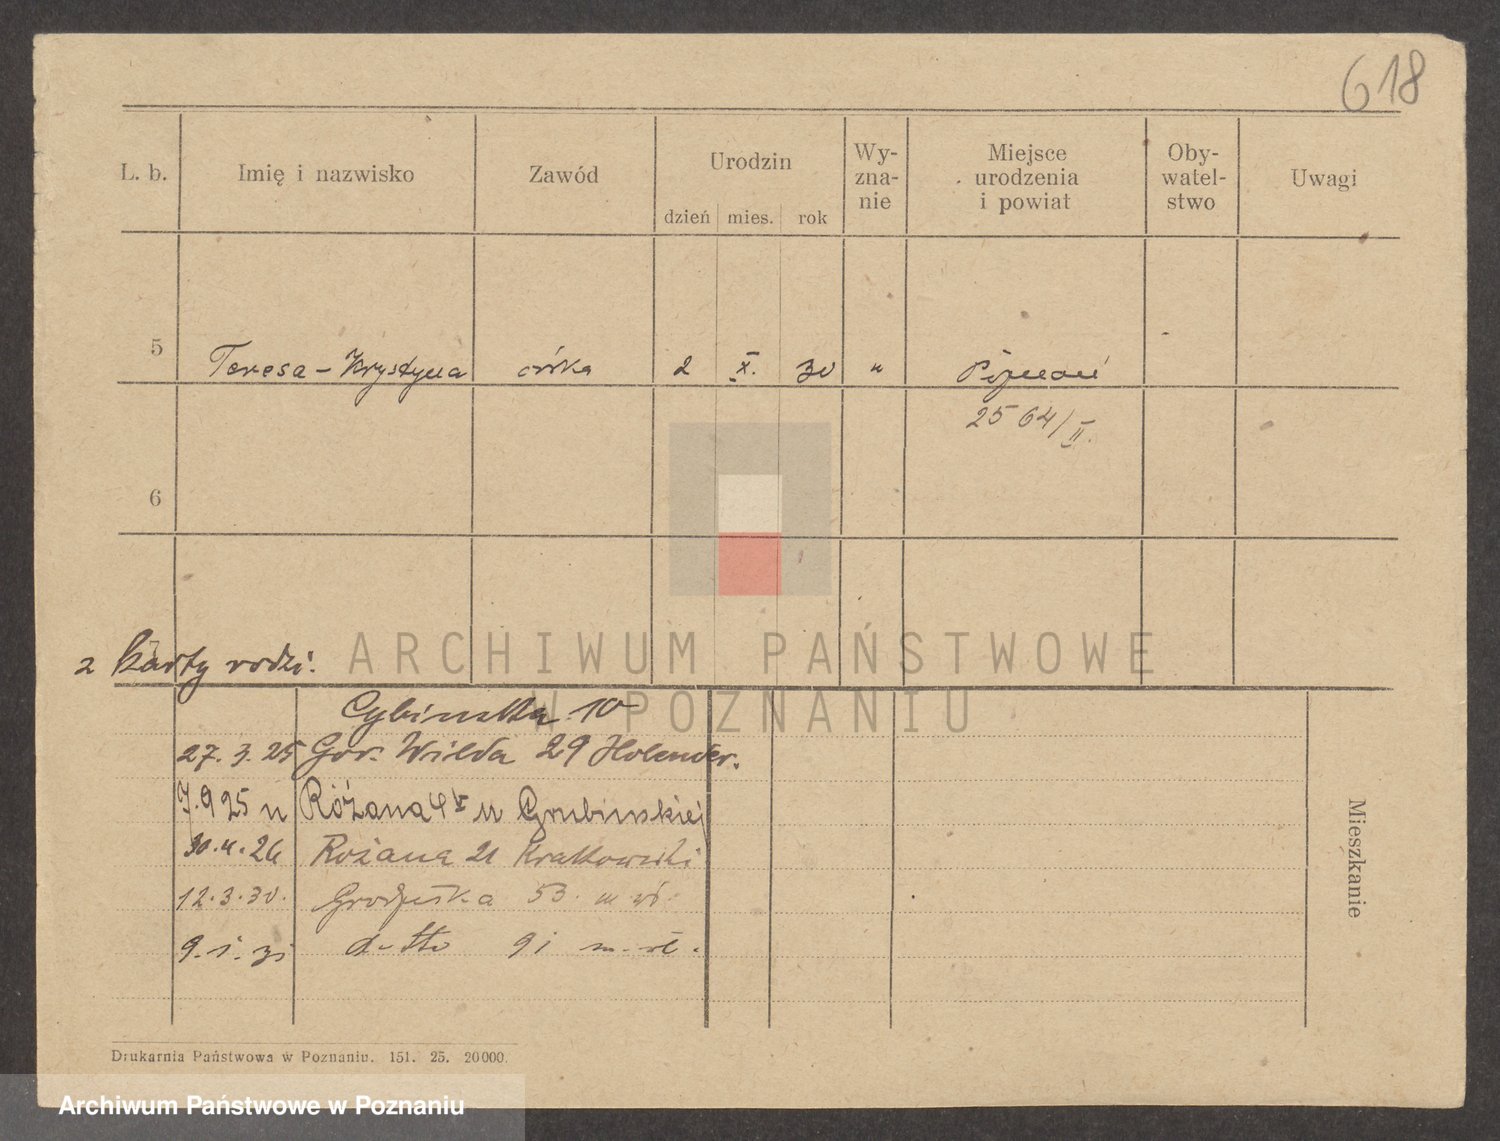 618
L. b. Imię i nazwisko Zawód Urodzin dzień mies. rok Wy-zna-nie Miejsce urodzenia i powiat Oby-watel-stwo Uwagi
5 Teresa - Krystyna córka 2 X. 30 " Poznań
2564/II.
6
z karty rodzi.
ARCHIWUM PAŃSTWOWE
W POZNANIU
Cybińska 10
27. 3. 25 Gór. Wilda 29 Holender.
7. 9 25 u Różana 4 u Grubińskiej
26 Różana 21
12. 3. 30. Grodziska 53. m wł.
9. 1. 31 d-tto 91 m. wł.
Mieszkanie
Drukarnia Państwowa w Poznaniu. 151. 25. 20000.
Archiwum Państwowe w Poznaniu